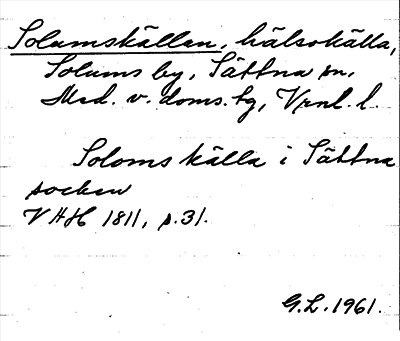 Solumskällan, hälsokälla,
Solums by, Sättna sn,
Med. v. doms. tg, Vrnl. l.
Soloms källa i Sättna
socken
VHH 1811, s. 31.
G.L. 1961.